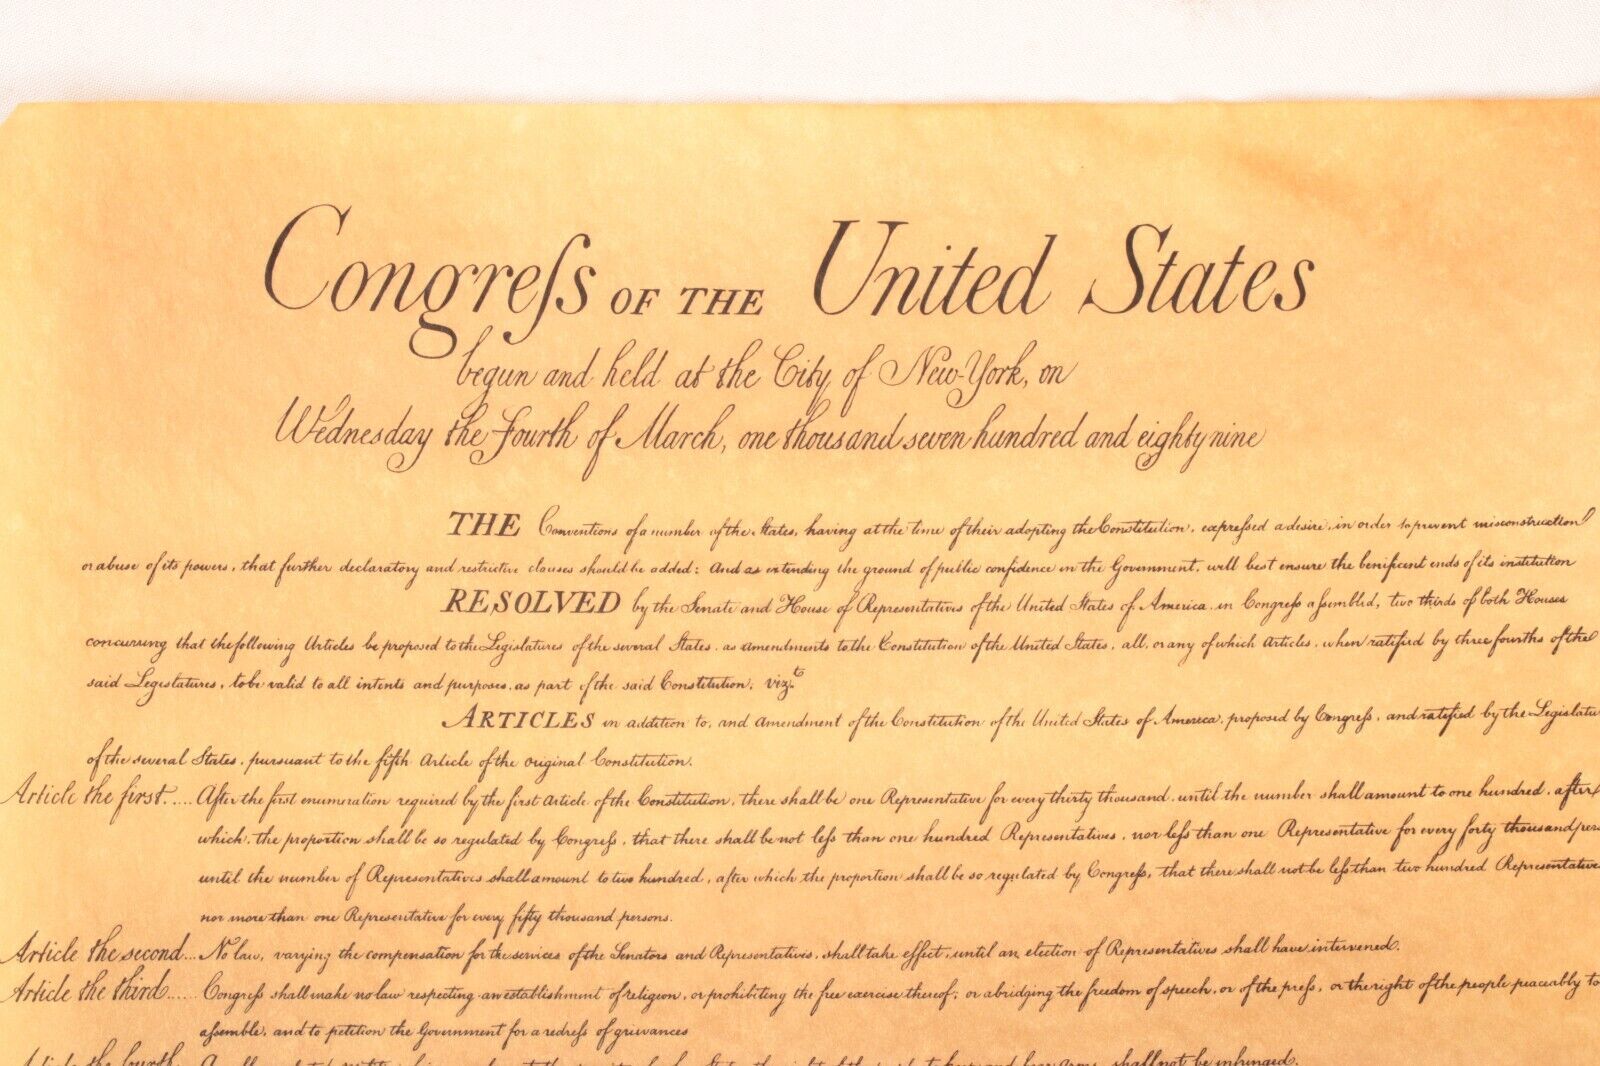 Congreſs OF THE United States
begun and held at the City of New-York, on
Wednesday the fourth of March, one thousand seven hundred and eighty nine
THE Conventions of a number of the States, having at the time of their adopting the Constitution, expreſsed a desire, in order to prevent misconstruction
or abuse of its powers, that further declaratory and restrictive clauses should be added: And as extending the ground of public confidence in the Government, will best ensure the benificent ends of its institution
RESOLVED by the Senate and House of Representatives of the United States of America, in Congreſs aſsembled, two thirds of both Houses
concurring that the following Articles be proposed to the Legislatures of the several States, as Amendments to the Constitution of the United States, all, or any of which articles, when ratified by three fourths of the
said Legislatures, to be valid to all intents and purposes, as part of the said Constitution, viz.t
ARTICLES in addition to, and amendment of the Constitution of the United States of America, proposed by Congreſs, and ratified by the Legislatu
of the several States, pursuant to the fifth Article of the Original Constitution.
Article the first..... After the first enumeration required by the first Article of the Constitution, there shall be one Representative for every thirty thousand, until the number shall amount to one hundred, after
which, the proportion shall be so regulated by Congreſs, that there shall be not leſs than one hundred Representatives, nor leſs than one Representative for every forty thousand per
until the number of Representatives shall amount to two hundred, after which the proportion shall be so regulated by Congreſs, that there shall not be leſs than two hundred Representatives
nor more than one Representative for every fifty thousand persons.
Article the second... No law, varying the compensation for the services of the Senators and Representatives, shall take effect, until an election of Representatives shall have intervened.
Article the third...... Congreſs shall make no law respecting an establishment of religion, or prohibiting the free exercise thereof; or abridging the freedom of speech, or of the preſs, or the right of the people peaceably to
aſsemble, and to petition the Government for a redreſs of grievances
Article the fourth shall not be infringed.